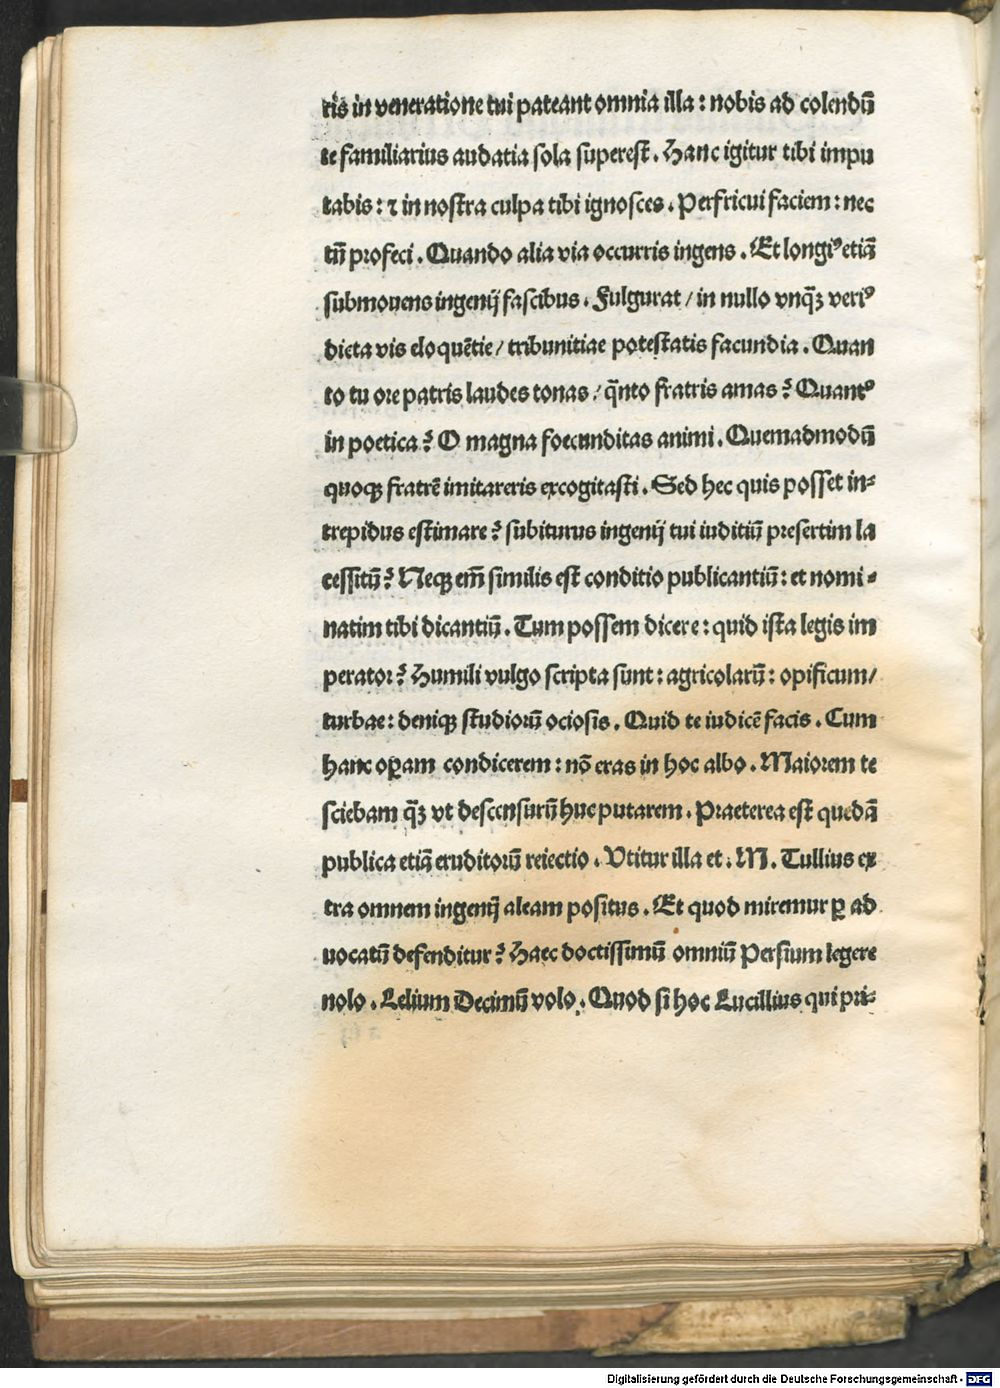 tis in veneratione tui pateant omnia illa : nobis ad colendū
te familiarius audatia sola superest . Hanc igitur tibi impu
tabis : ⁊ in nostra culpa tibi ignosces . Perfricui faciem : nec
tñ profeci . Quando alia via occurris ingens . Et longiꝰ etiā
submouens ingenij fascibus . Fulgurat / in nullo vnqꝫ veriꝰ
dicta vis eloquētie / tribunitiae potestatis facundia . Quan
to tu ore patris laudes tonas / q̄nto fratris amas ? Quantꝰ
in poetica ? O magna foecunditas animi . Quemadmodū
quoqꝫ fratrē imitareris excogitasti . Sed hec quis posset in⸗
trepidus estimare ? subiturus ingenij tui iuditiū presertim la
cessitū ? Neqꝫ em̄ similis est conditio publicantiū : et nomi⸗
natim tibi dicantiū . Tum possem dicere : quid ista legis im
perator ? Humili vulgo scripta sunt : agricolarū : opificum /
turbae : deniqꝫ studiorū ociosis . Quid te iudicē facis . Cum
hanc oꝑam condicerem : nō eras in hoc albo . Maiorem te
sciebam q̄ꝫ vt descensurū huc putarem . Praeterea est quedā
publica etiā eruditorū reiectio . Vtitur illa et : M . Tullius ex
tra omnem ingenij aleam positus . Et quod miremur ꝑ ad
uocatū defenditur ? Haec doctissimū omniū Persium legere
nolo . Lelium Decimū volo . Quod si hoc Lucillius qui pri⸗
Digitalisierung gefördert durch die Deutsche Forschungsgemeinschaft - DFG